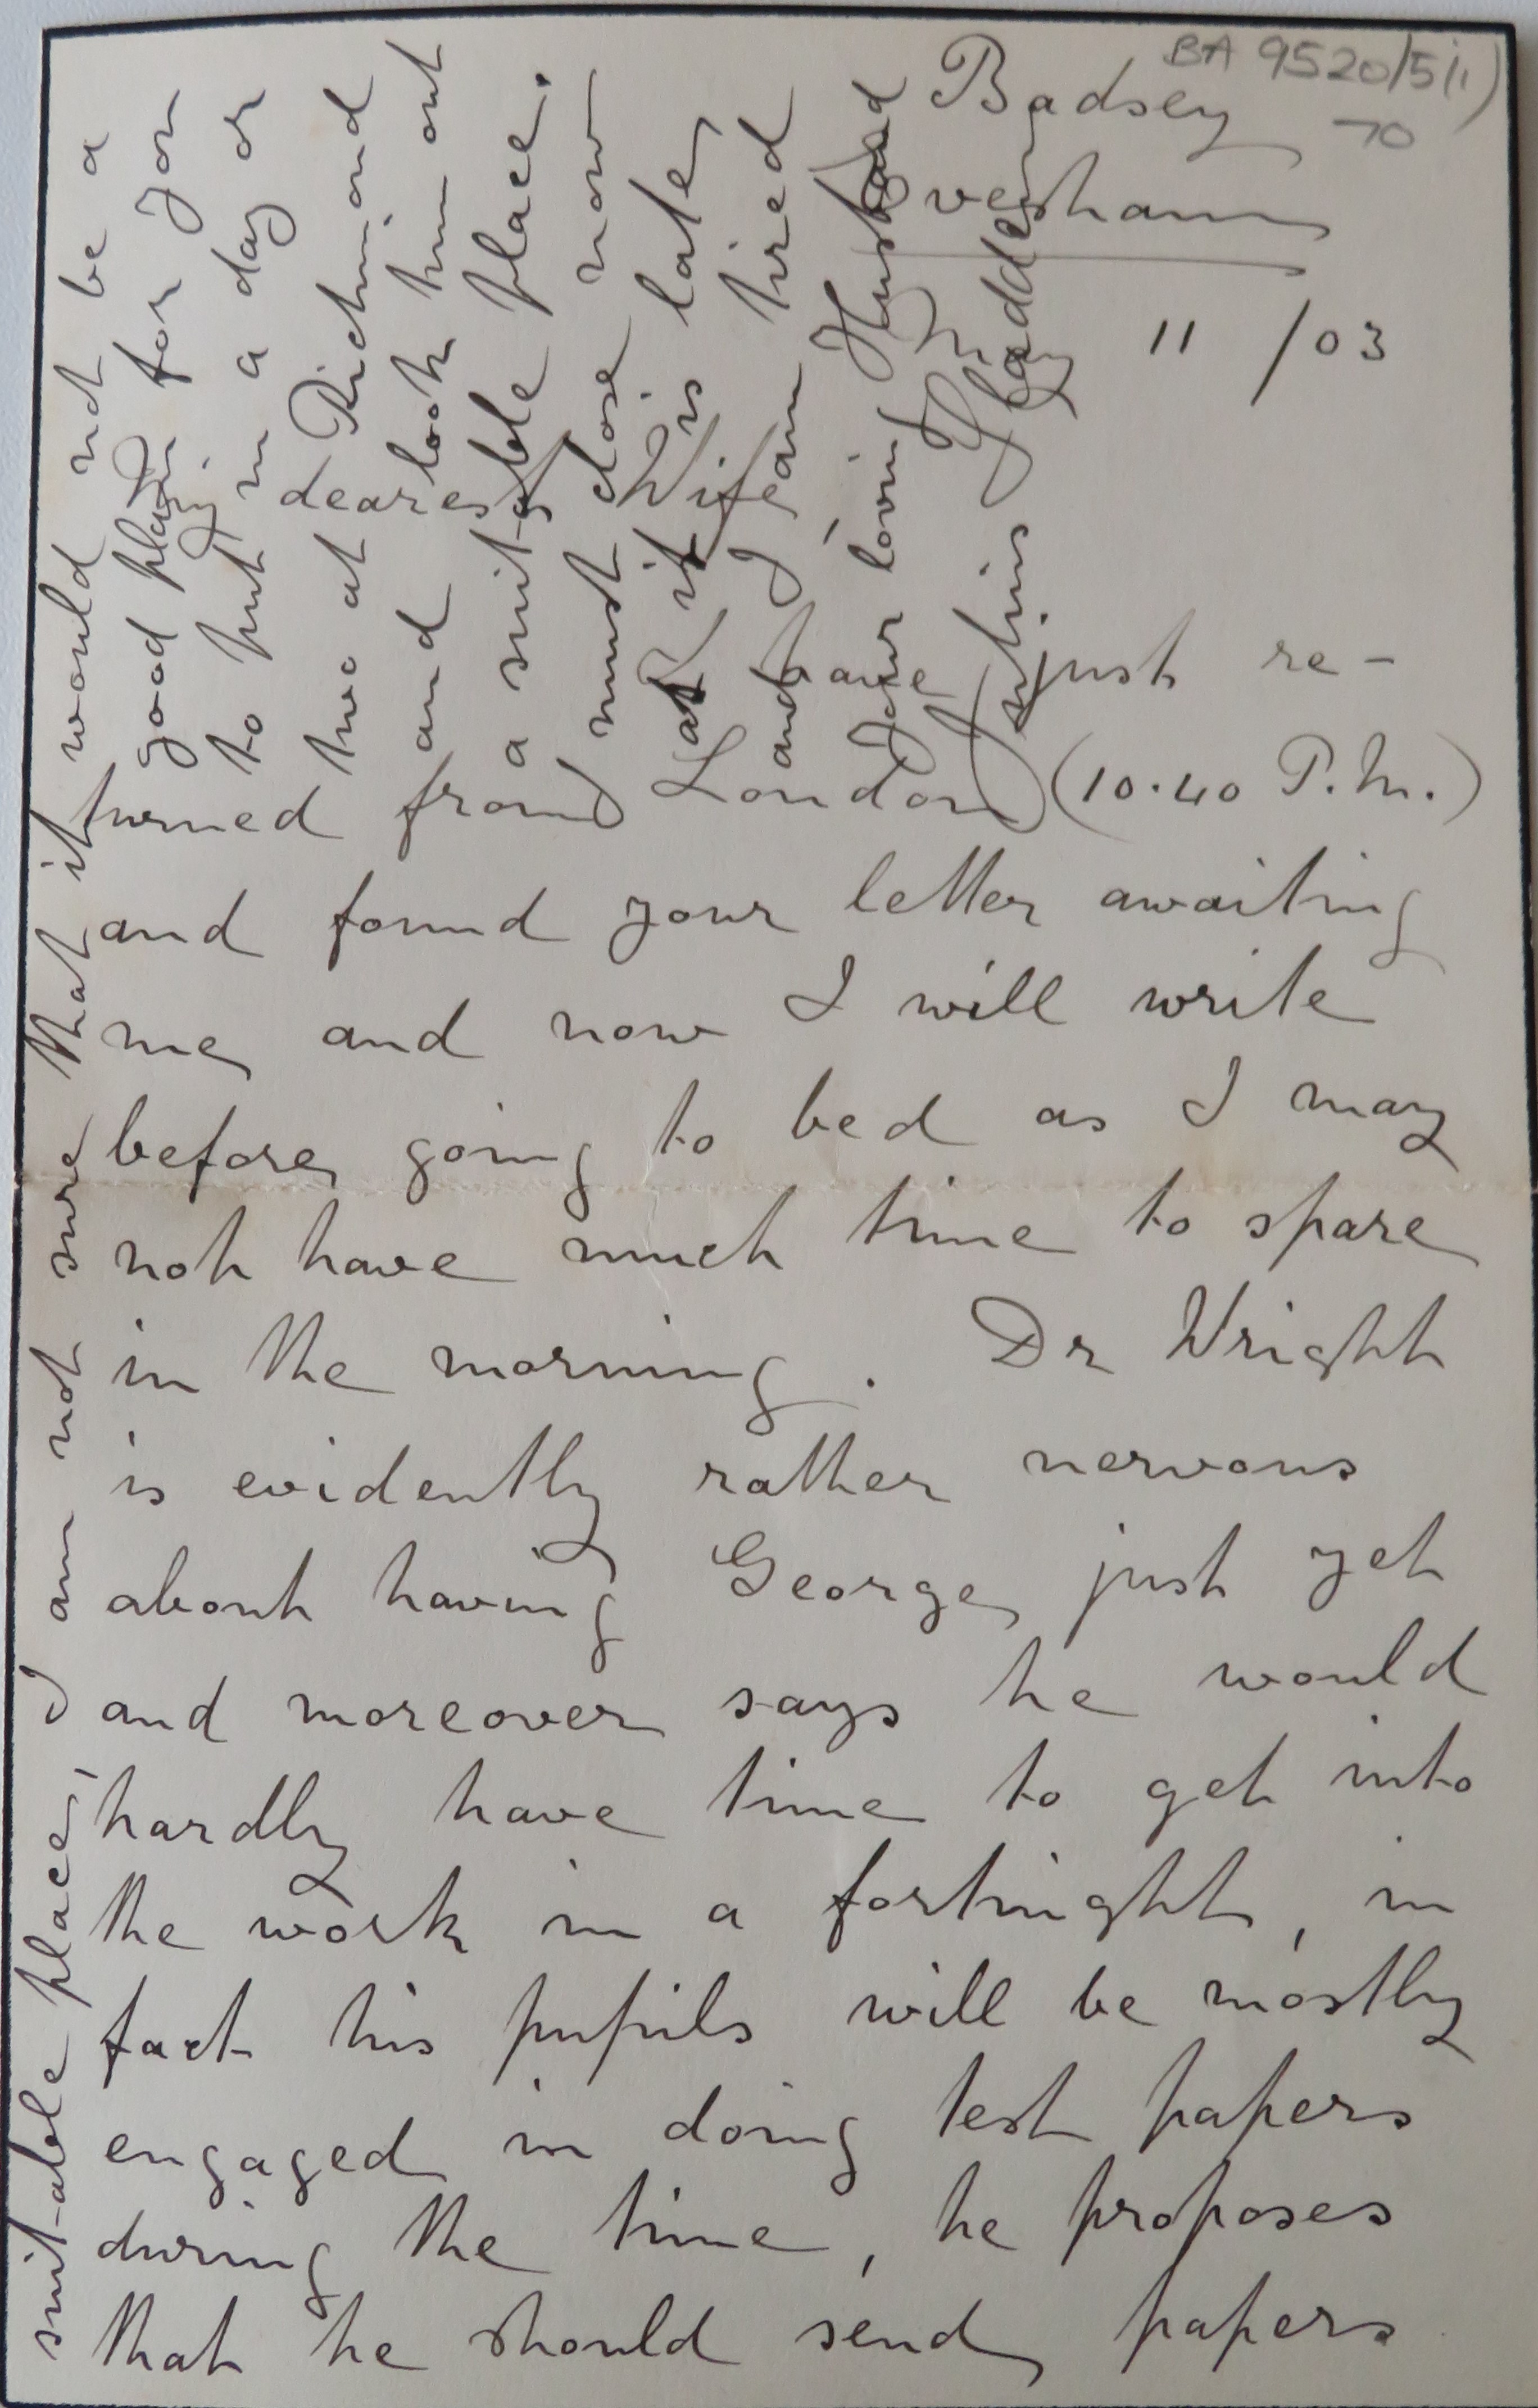 BA 9520/5(ii)
70
Badsey
Evesham
May 11 /03
My dearest Wife
I have just re-
turned from London (10.40 P.M.)
and found your letter awaiting
me, and now I will write
before going to bed as I may
not have much time to spare
in the morning. Dr Wright
is evidently rather nervous
about having George, just yet
and moreover says he would
hardly have time to get into
the work in a fortnight, in
fact his pupils will be mostly
engaged in doing test papers
during the time, he proposes
that he should send papers
suitable place, I am not sure that it would not be a
good plan for you
to put in a day or
two at Richmond
and look him out
a suitable place.
must close now
as it is late
and I am tired
Your loving Husband
Julius Sladden